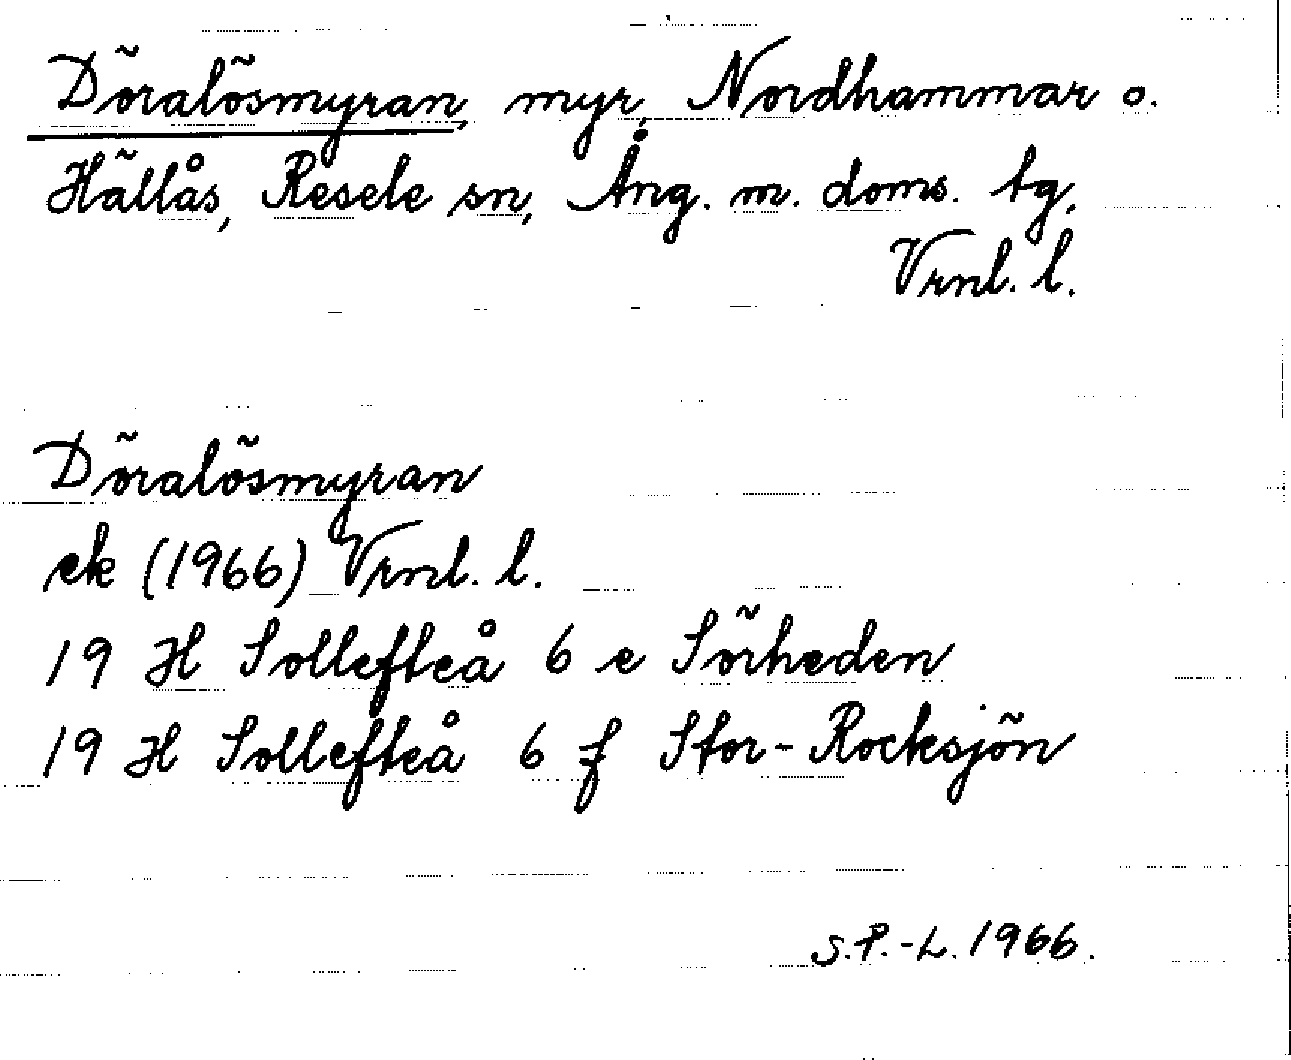 Döralösmyran, myr, Nordhammar o.
Hällås, Resele sn, Ång. m. doms. tg,
Vrnl. l.
Döralösmyran
ek (1966) Vrnl. l.
19 H Sollefteå 6 e Sörheden
19 H Sollefteå 6 f Stor-Rocksjön
S.P.-L. 1966.